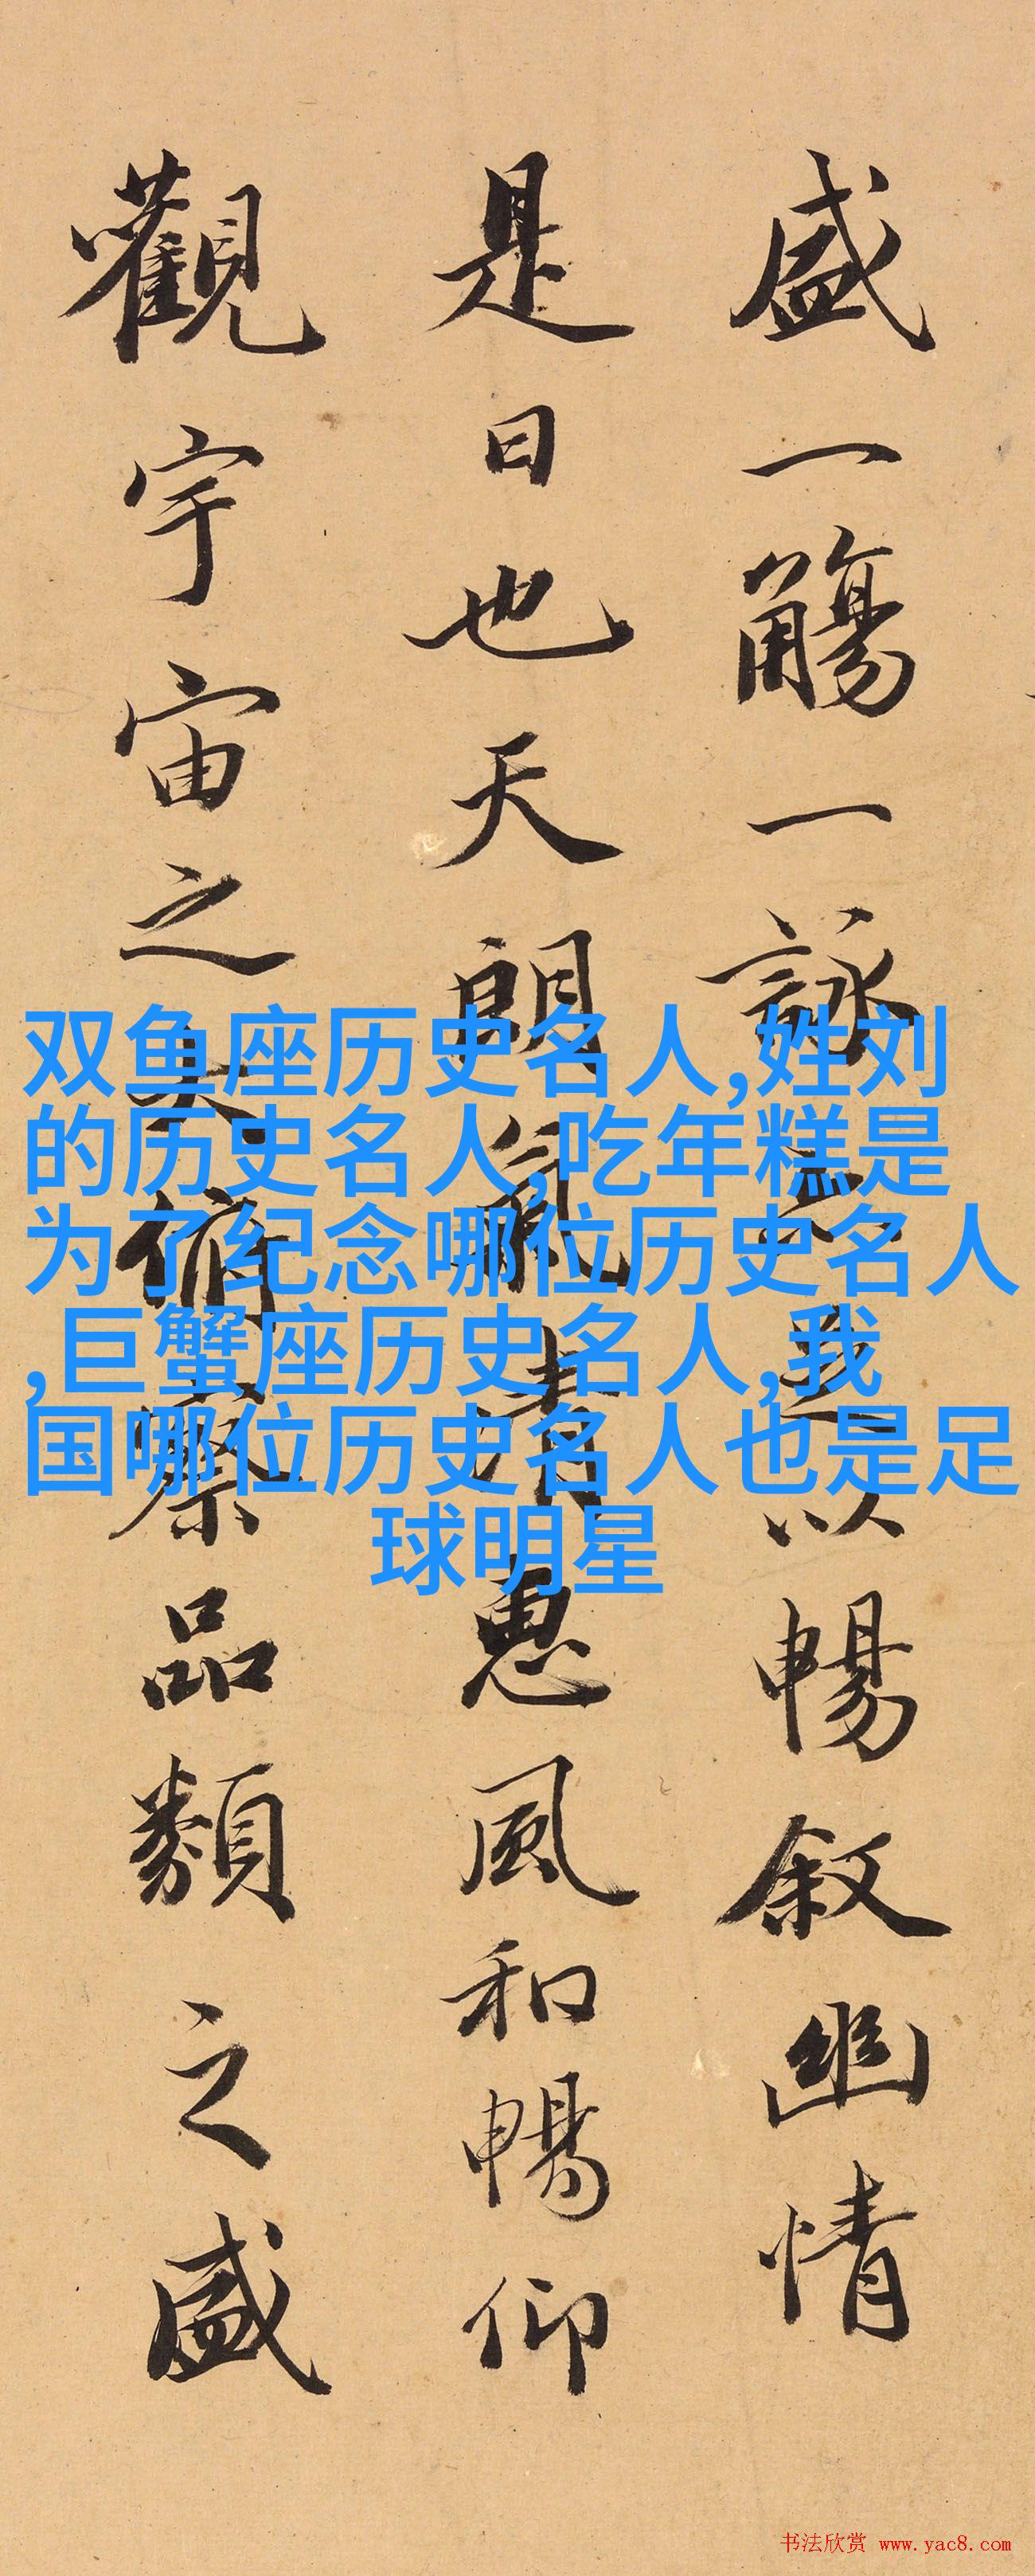 盛一觴一詠亦足以暢敘幽情
是日也天朗氣清惠風和暢仰
觀宇宙之大俯察品類之盛
双鱼座历史名人,姓刘
的历史名人,吃年糕是
为了纪念哪位历史名人
,巨蟹座历史名人,我
国哪位历史名人也是足
球明星
书法欣赏 www.yac8.com